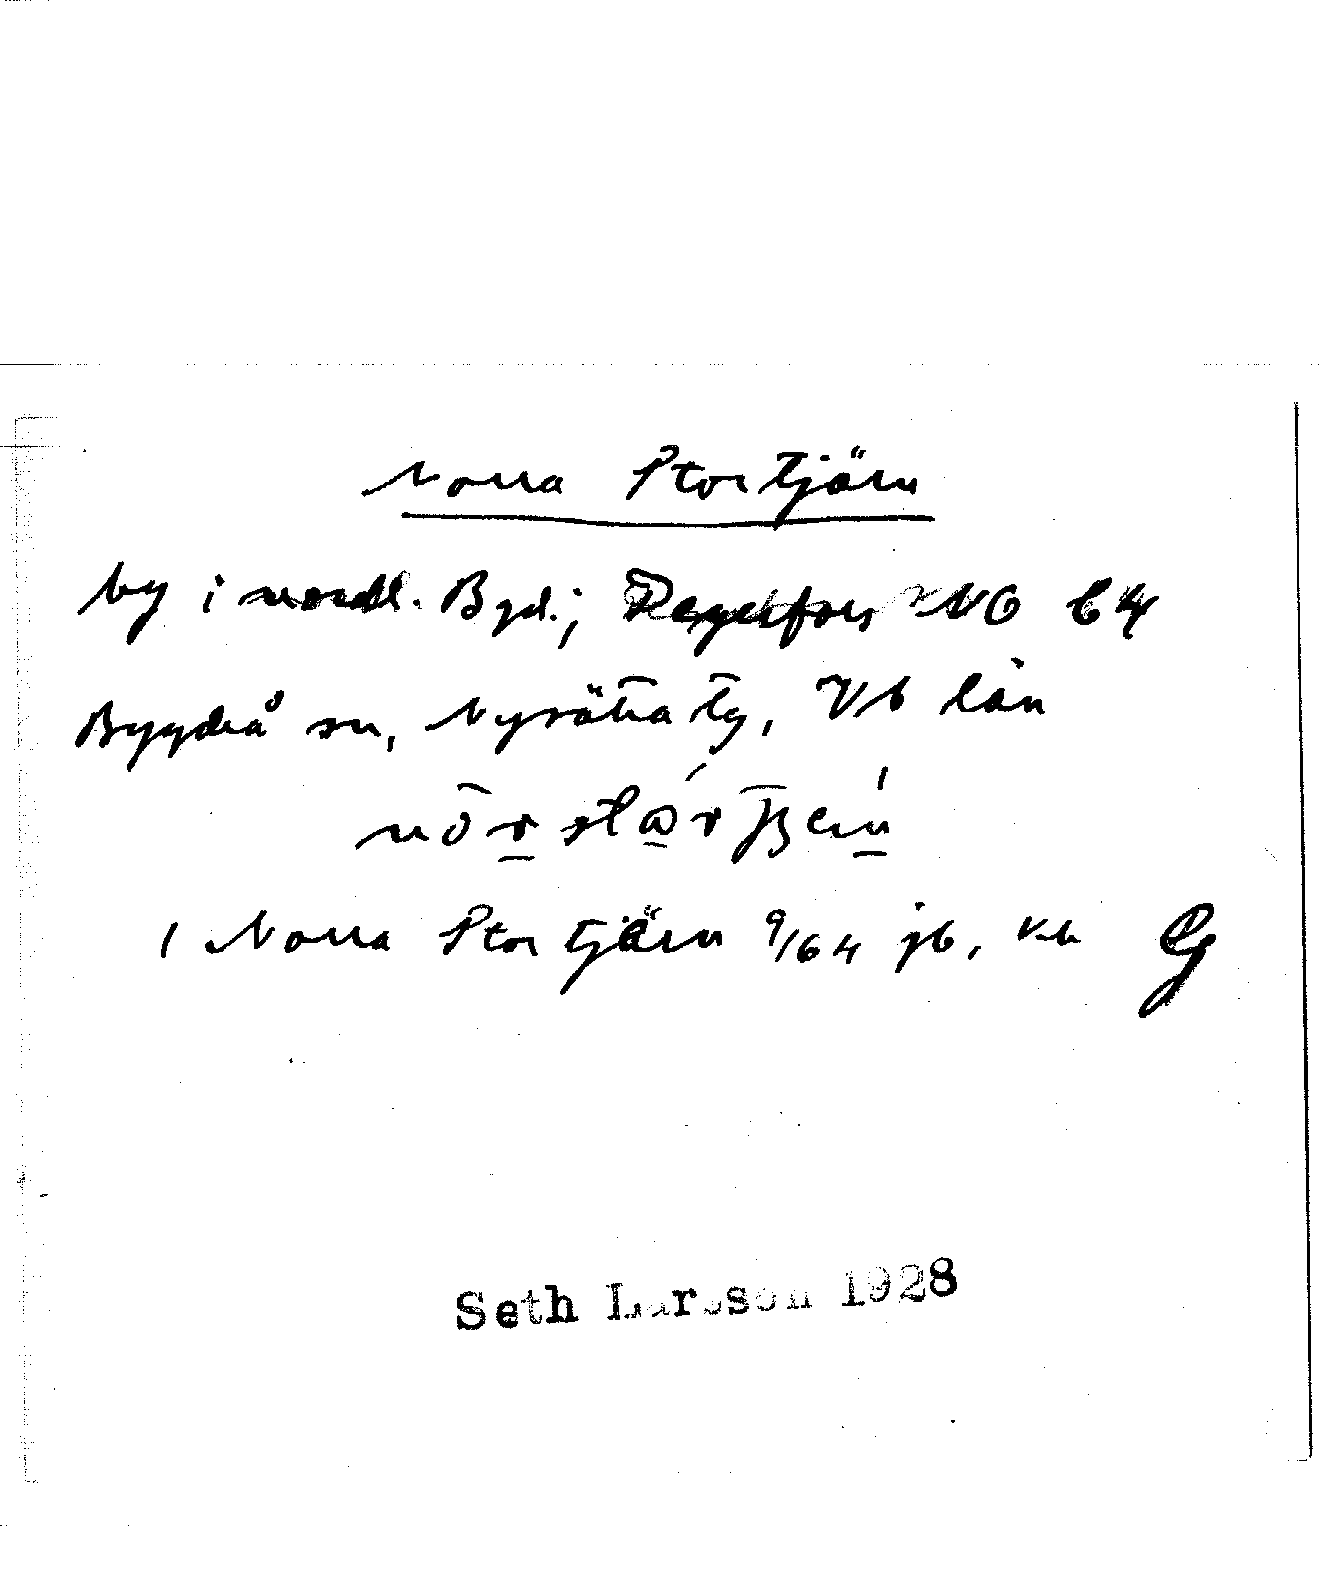 Norra Stortjärn
by i nordl. Bygd.; Degerfors NO C4
Bygdeå sn, Nysätra tg, Vb län
1 Norra Stortjärn 9/64 jb, kb G
Seth Larsson 1928